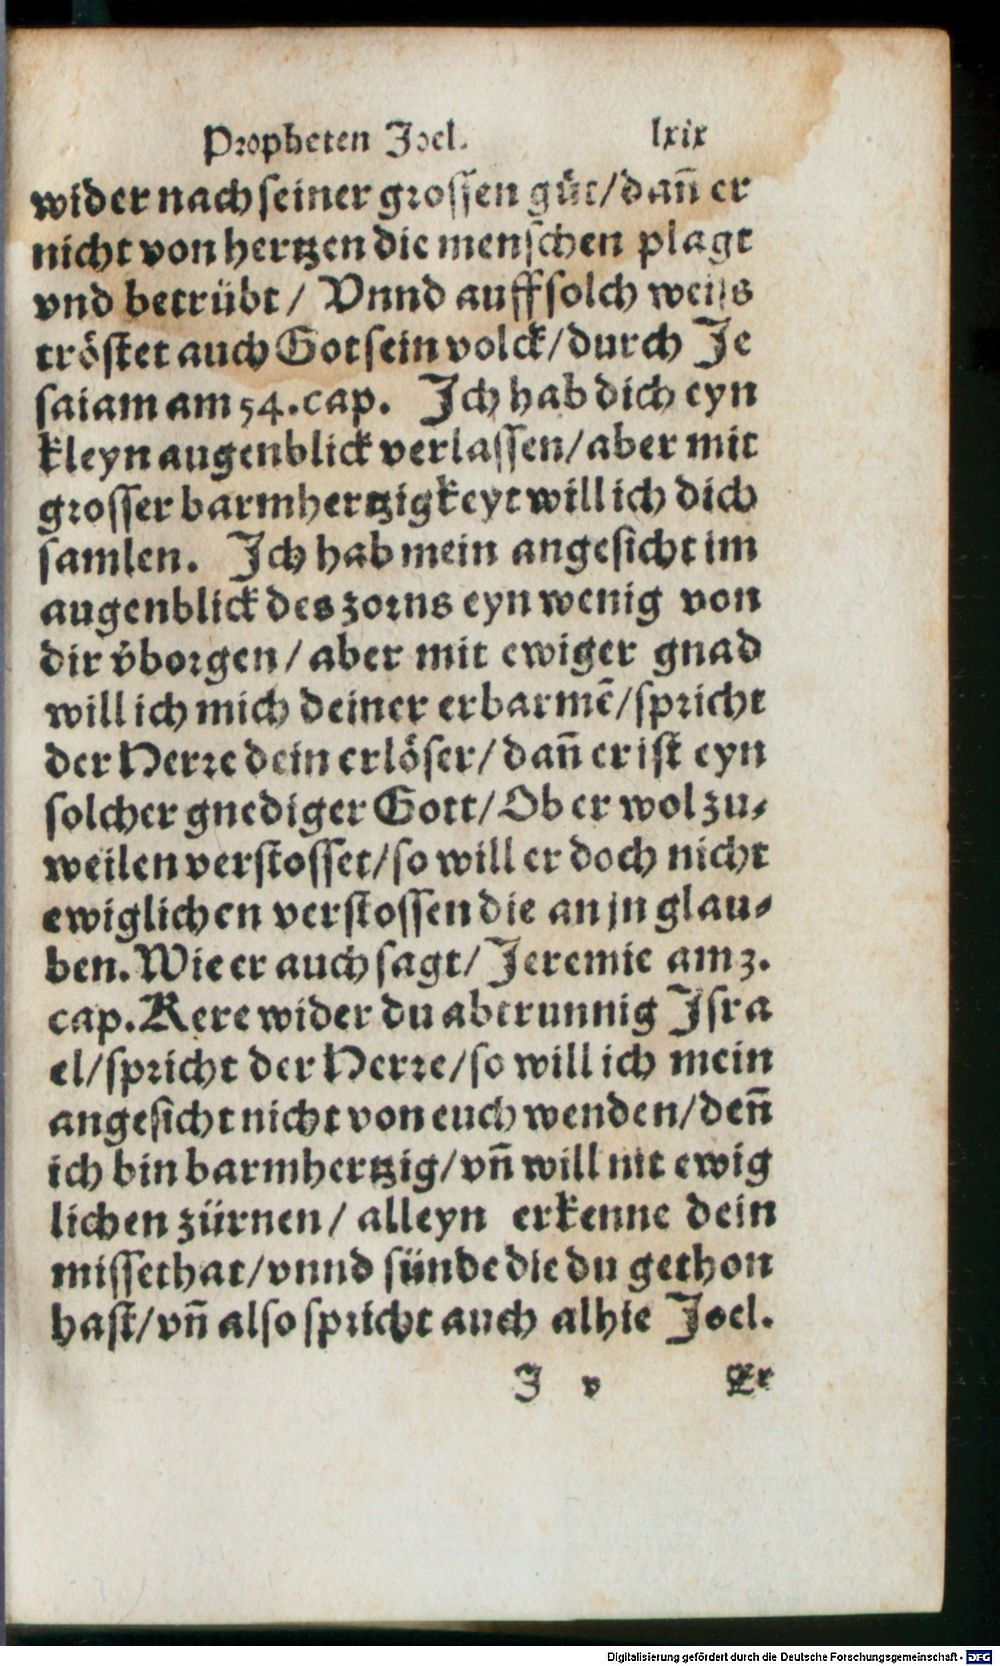 Propheten Joel. lxix
wider nach seiner grossen güt/dañ er
nicht von hertzen die menschen plagt
vnd betrübt/ Vnnd auff solch weiss
tröstet auch Got sein volck/durch Je
saiam am 54.cap. Ich hab dich eyn
kleyn augenblick verlassen/aber mit
grosser barmhertzigkeyt will ich dich
samlen. Ich hab mein angesicht im
augenblick des zorns eyn wenig von
dir v̈borgen/aber mit ewiger gnad
will ich mich deiner erbarmē/spricht
der Herre dein erlöser/dañ er ist eyn
solcher gnediger Gott/Ob er wol zu-
weilen verstosset/so will er doch nicht
ewiglichen verstossen die an jn glau-
ben. Wie er auch sagt/Jeremie am 3.
cap. Kere wider du abtrunnig Jsra
el/spricht der Herre/so will ich mein
angesicht nicht von euch wenden/deñ
ich bin barmhertzig/vñ will nit ewig
lichen zürnen/ alleyn erkenne dein
missethat/vnnd sünde die du gethon
hast/vñ also spricht auch alhie Joel.
J v Er
Digitalisierung gefördert durch die Deutsche Forschungsgemeinschaft - DFG